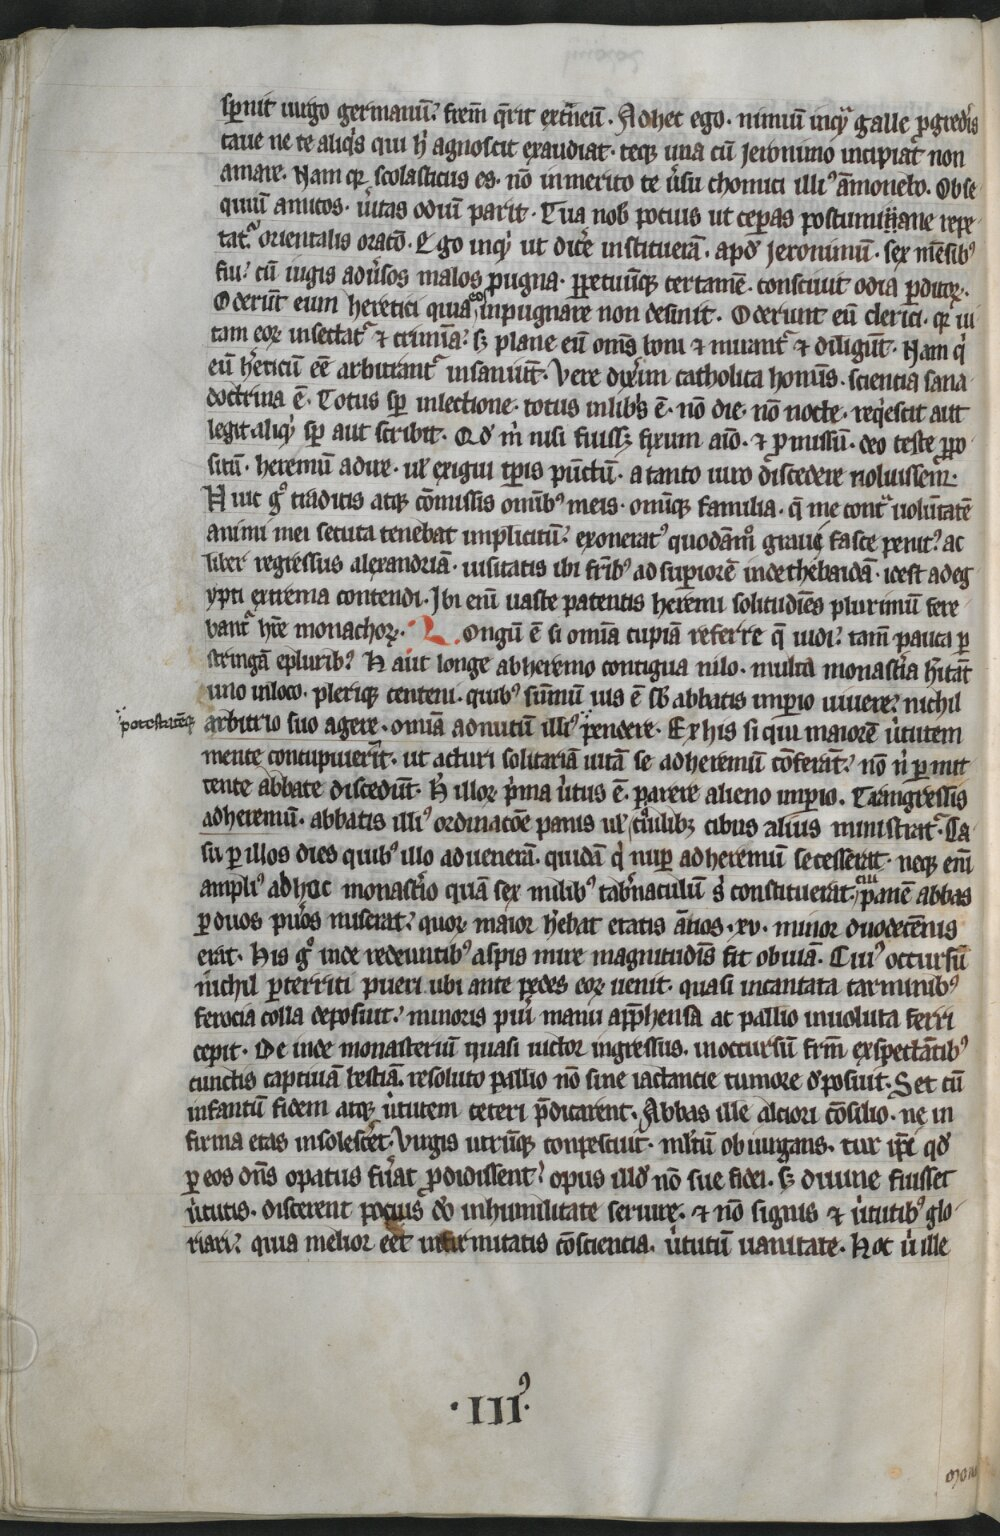 sp̄nit uirgo germanū? frem̄ q̄rit extn̄eū. Ad hec ego. nimiū inq̄ galle ꝓgredis
caue ne te aliq̇s qui h̄ agnoscit exaudiat. teqꝫ una cū jeronimo incipiat non
amare. Nam qꝛ scolasticus es. nō inmerito te ūsu chomici illi᾽ āmonebo. Obse
quiū amicos. ūitas odiū parit. Tua nob̄ pocius ut ceꝑas postumiane repe
tat᾽ orientalis oracō. Ego inq̄ ut dic̄e institueram̄. apd̄ jeronimū. sex mēsib᾽
fui? cū iugis aduͥsos malos pugna. ꝑpetuūqꝫ certamē. consciuit odia ꝑditoꝝ.
Oderūt eum heretici quia eos inpugnare non desinit. Oderunt eū clerici. qꝛ ui
tam eoꝝ insectat᾽ ⁊ crimīa? sꝫ plane eū om̄s boni ⁊ mirant᾽ ⁊ diligūt. Nam q̇
eū h̄eticū eē arbitrant᾽ insaniūt. Vere dixīm catholica homīs. scientia sana
doctrina ē. Totus sꝑ inlectione. totus inlib̄s ē. nō die. nō nocte. reqͥescit aut
legit aliqͥ sꝑ aut scribit. Qd̄ m̄ nisi fuissꝫ fixum aīo. ⁊ ꝓmissū. deo teste ꝓpo
sitū. heremū adire. ul̄ exigui tp̄is pūctū. a tanto uiro discedere noluissem̄.
Huic gͦ traditis atqꝫ cōmissis omīb᾽ meis. omīqꝫ familia. q̄ me contᷓ uolūtatē
animi mei secuta tenebat implicitū? exonerat᾽ quodāmͦ graui fasce penit᾽? ac
liber regressus alexandriā. uisitatis ibi frīb᾽ ad superiorē inde thebaidā. idest ad eg
ypti extrema contendi. Ibi enī uaste patentis heremi solitudīes plurimū fere
bant᾽ hr̄e monachoꝝ. Longū ē si omīa cupiā referre q̄ uidi? tam̄ pauca ꝑ
stringā epluribꝫ? Haut longe ab heremo contigua nilo. multa monast̄ia hītāt
uno inloco. pleriqꝫ centeni. quib᾽ sūmū ius ē sb̄ abbatis imꝑio uiuere? nichil
arbitrio suo agere. omīa ad nutū illi᾽ pendere. Ex his si qui maiorē ūtutem
potestatēqꝫ
mente concupuierīt. ut acturi solitariā uitā se ad heremū cōferāt? nō n̄ ꝑmit
tente abbate discedūt. H̄ illoꝝ p̄ma ūtus ē. parere alieno imꝑio. Transgressis
ad heremū. abbatis illi᾽ ordinacōe panis ul̄ qͥlibꝫ cibus alius ministrat᾽. Ca
su ꝑ illos dies quib᾽ illo adueneram̄. quidā q̇ nuꝑ ad heremū secesserat. neqꝫ enī
ampli᾽ ab hoc monast̄io quā sex milib᾽ tab̄naculū s̄ constituerat. cui panē abbas
ꝑ duos pūos miserat? quoꝝ maior h̄ebat etatis āños. xv. minor duodecēnis
erat. His gͦ inde redeuntib᾽ aspis mire magnitudīs fit obuiā. Cui᾽ occursū
nichil ꝑterriti pueri ubi ante pedes eoꝝ uenit. quasi incantata carminib᾽
ferocia colla deposuit? minoris pu̇i manu app̄hensa ac pallio inuoluta ferri
cepit. De inde monasteriū quasi uictor ingressus. inoccursū frm̄ exspectātib᾽
cunctis captiuā bestiā. resoluto pallio nō sine iactancie tumore d̄posuit. Set cū
infantiū fidem atqꝫ ūtutem ceteri p̄dicarent. Abbas ille altiori cōsilio. ne in
firma etas insolesc̄et. Virgis utrūqꝫ conpescuit. ml̄tū obiurgans. cur ip̄i qd̄
ꝑ eos dn̄s opatus fu̇at ꝓdidissent? opus illd̄ nō sue fidei. sꝫ diuine fuisset
ūtutis. discerent pocius dō inhumilitate seruire. ⁊ nō signis ⁊ ūtutib᾽ glo
riari? quia melior eēt infirmitatis cōscientia. ūtutū uanitate. Hoc ū ille
.III᾽.